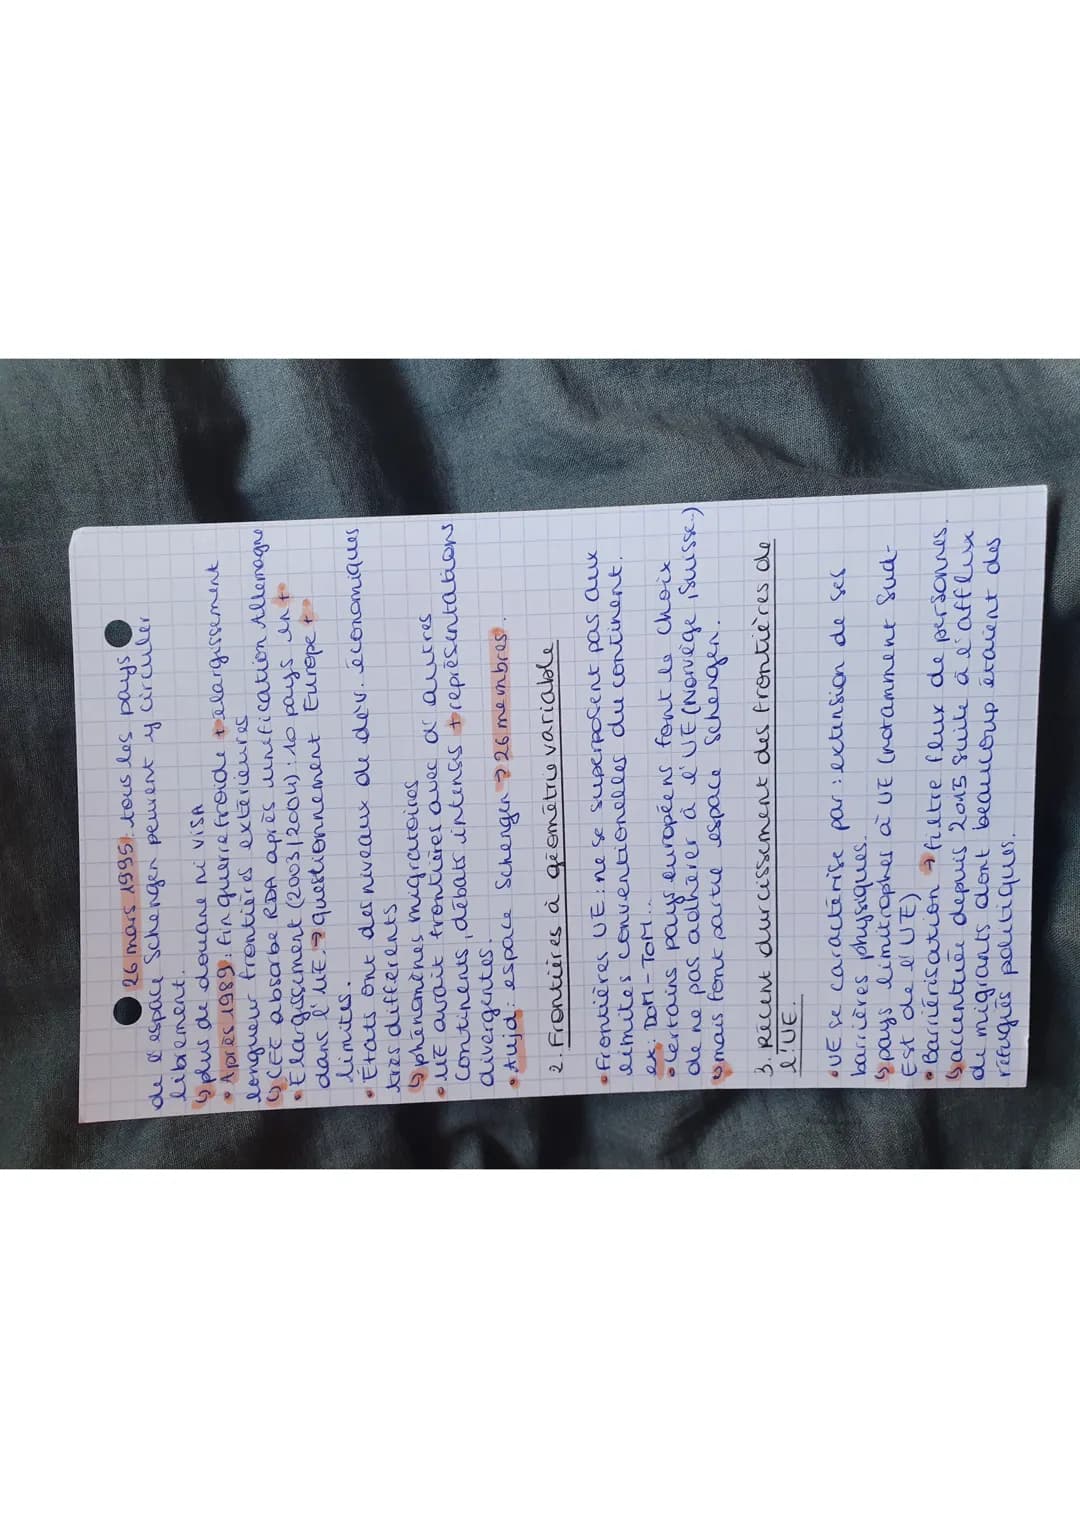 • 26 mars 1995 : tous les pays
de l'espace Schengen peuvent y circuler
librement.
↳ plus de douane ni VISA
• Après 1989 : fin guerre froide + élargissement
longueur frontières extérieures
↳ CEE absorbe RDA après unification Allemagne
• Elargissement (2003/2004) : 10 pays en +
dans l'UE. → questionnement Europe +
limites.
• États ont des niveaux de dév. économiques
très différents
↳ phénomènes migratoires
• UE aurait frontières avec d'autres
continents, débats intenses + représentations
divergentes.
• Aujd : espace Schengen → 26 membres.
2. Frontières à géométrie variable
• Frontières UE : ne se superposent pas aux
limites conventionelles du continent.
ex : DOM-TOM...
• Certains pays européens font le choix
de ne pas adhérer à l'UE (Norvège, Suisse..)
↳ mais font partie espace Schengen.
3. Récent durcissement des frontières de
l'UE.
• UE se caractérise par : extension de ses
barrières physiques.
↳ pays limitrophes à UE (notamment Sud-
Est de l'UE)
• Barriérisation → filtre flux de personnes.
↳ accentuée depuis 2015 suite à l'afflux
de migrants dont beaucoup étaient des
réfugiés politiques.